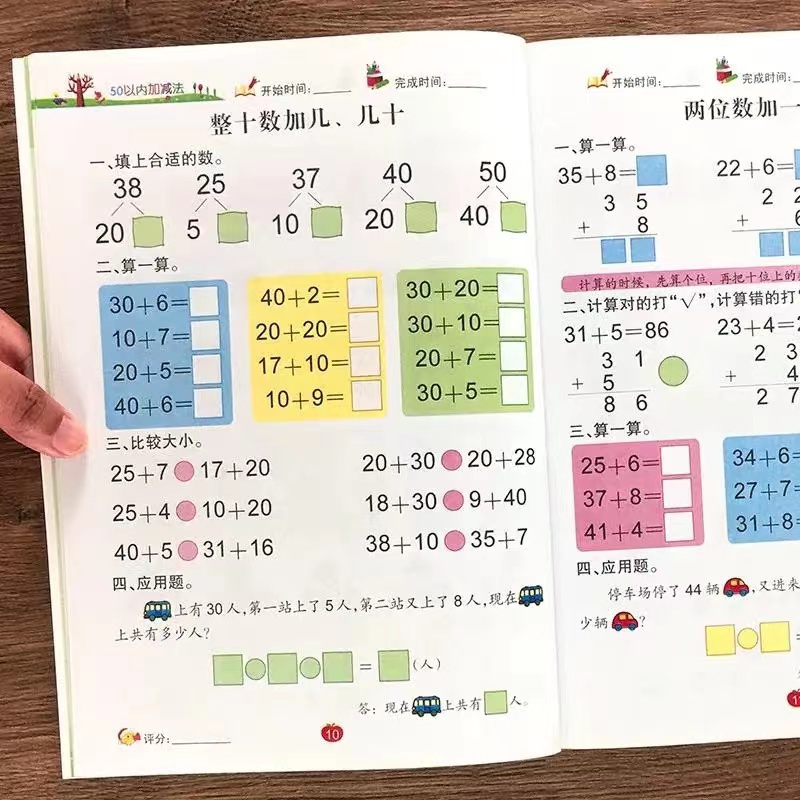 50以内加减法 开始时间: 完成时间:
整十数加几、几十
一、填上合适的数。
38 25 37 40 50
20 5 10 20 40
二、算一算。
30+6= 40+2= 30+20=
10+7= 20+20= 30+10=
20+5= 17+10= 20+7=
40+6= 10+9= 30+5=
三、比较大小。
25+7 17+20 20+30 20+28
25+4 10+20 18+30 9+40
40+5 31+16 38+10 35+7
四、应用题。
上有30人,第一站上了5人,第二站又上了8人,现在
上共有多少人?
=(人)
答:现在上共有人。
评分:
10
开始时间: 完成时间:
两位数加一
一、算一算。
35+8= 22+6=
3 5 2 2
+ 8 + 6
计算的时候,先算个位,再把十位上的
二、计算对的打“√”,计算错的打“
31+5=86 23+4=2
3 1 2 3
+ 5 + 4
8 6 2 7
三、算一算。
25+6= 34+6=
37+8= 27+7=
41+4= 31+8=
四、应用题。
停车场停了44辆,又进来
少辆?